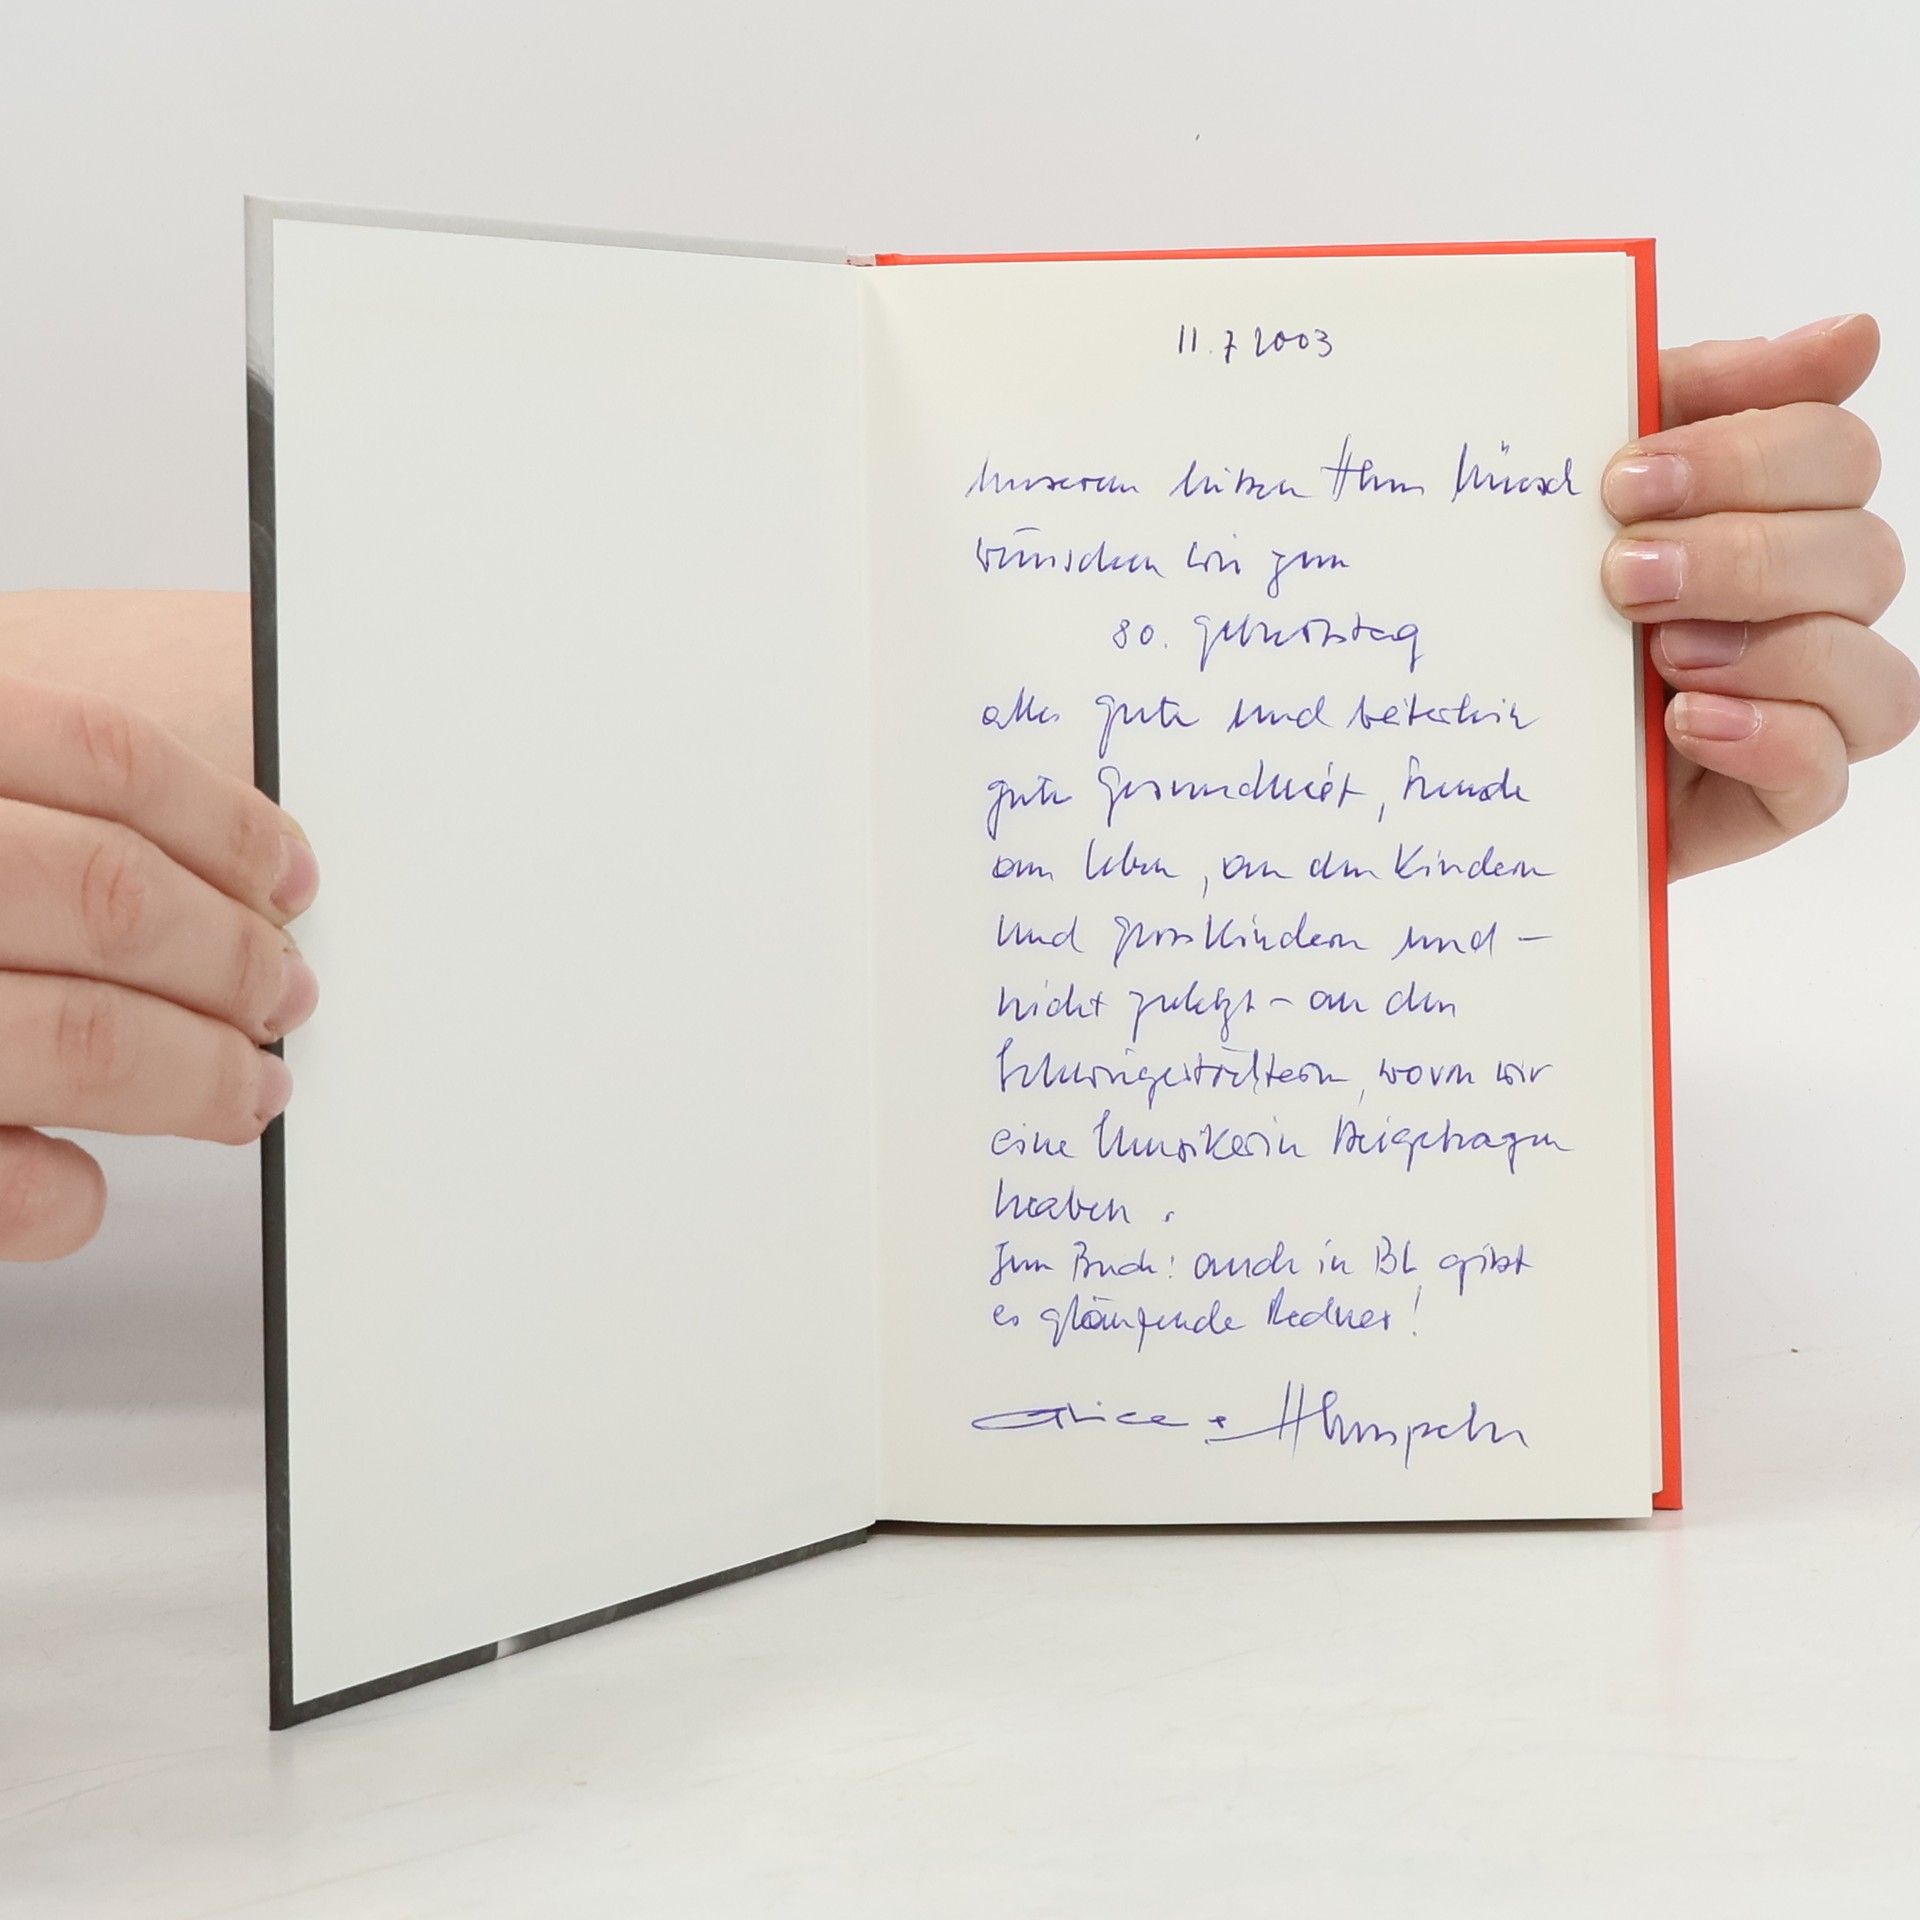 11.7 2003
Unserem Hans
wünschen wir zum
80. Geburtstag
alles gute und weiterhin
gute Gesundheit, Freude
am Leben, an den Kindern
und Grosskindern und –
nicht zuletzt – an den
Schwiegertöchtern, wovon wir
eine Musikerin beigetragen
haben.
Zum Buch: auch in BL gibt
es glänzende Redner!
Alice + Hanspeter